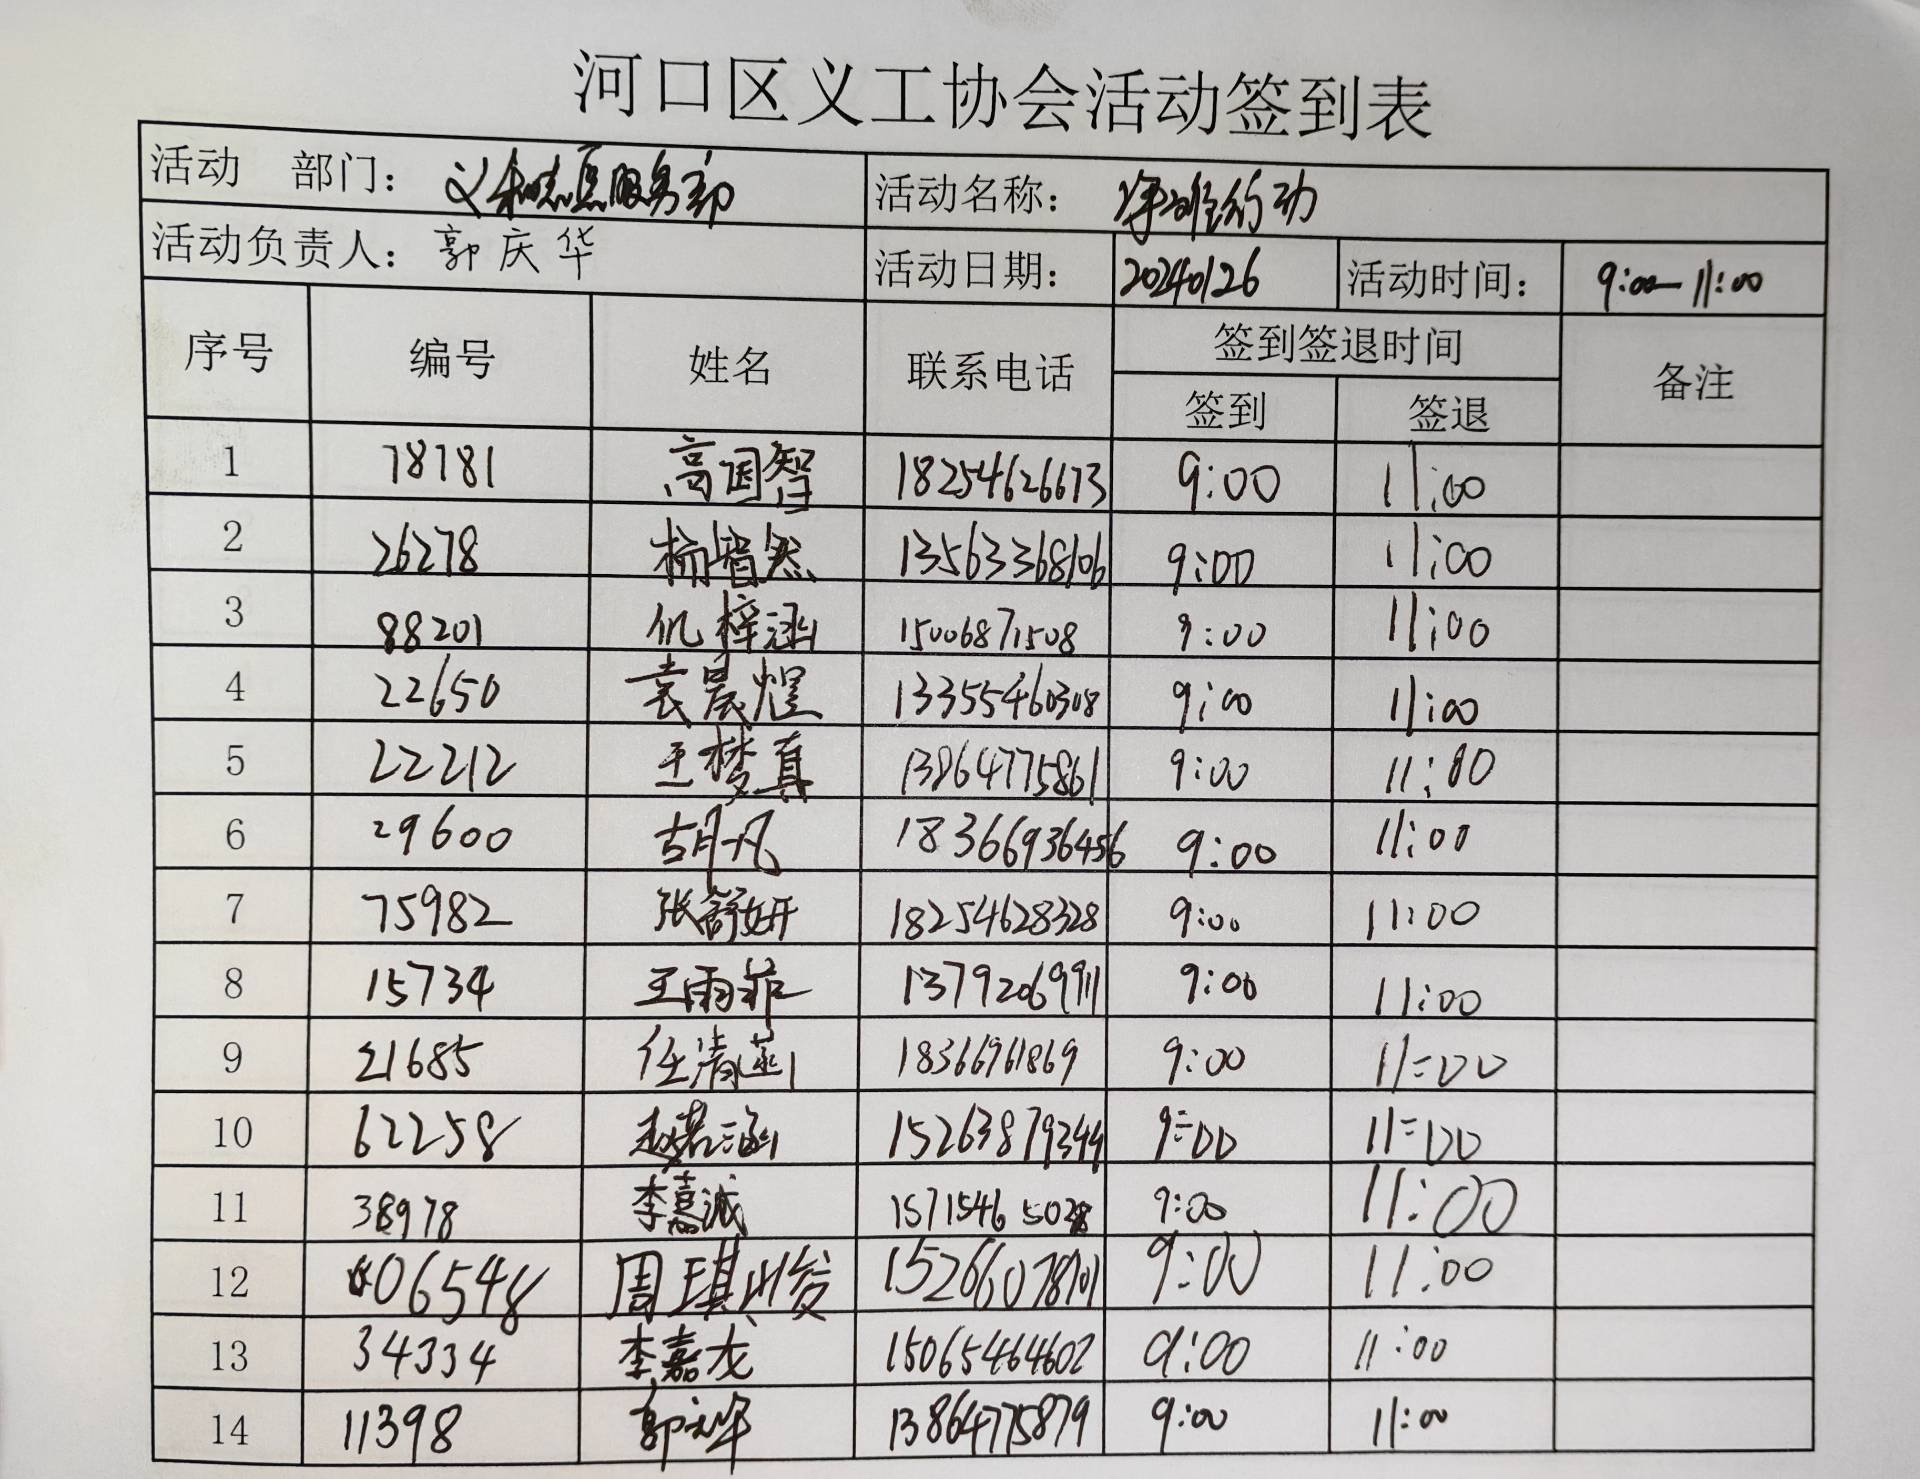 河口区义工协会活动签到表
活动 部门： 义和志愿服务部 活动名称： 净滩行动
活动负责人： 郭庆华 活动日期： 20240126 活动时间： 9:00-11:00
序号 编号 姓名 联系电话 签到签退时间 备注
签到 签退
1 78781 高国智 18254626673 9:00 11:00
2 26278 杨智然 13563368106 9:00 11:00
3 88201 仉梓涵 15006871508 9:00 11:00
4 22650 袁晨煜 13355460308 9:00 11:00
5 22212 王梦真 13864775861 9:00 11:00
6 29600 胡凡 18366936456 9:00 11:00
7 75982 张舒妍 18254628328 9:00 11:00
8 15734 王雨菲 13792069911 9:00 11:00
9 21685 任清涵 18366961869 9:00 11:00
10 62258 赵若涵 15263879344 9:00 11:00
11 38978 李嘉诚 15715465028 9:00 11:00
12 06548 周琪 15266078101 9:00 11:00
13 34334 李嘉龙 15065464602 9:00 11:00
14 11398 郭庆华 13864775879 9:00 11:00